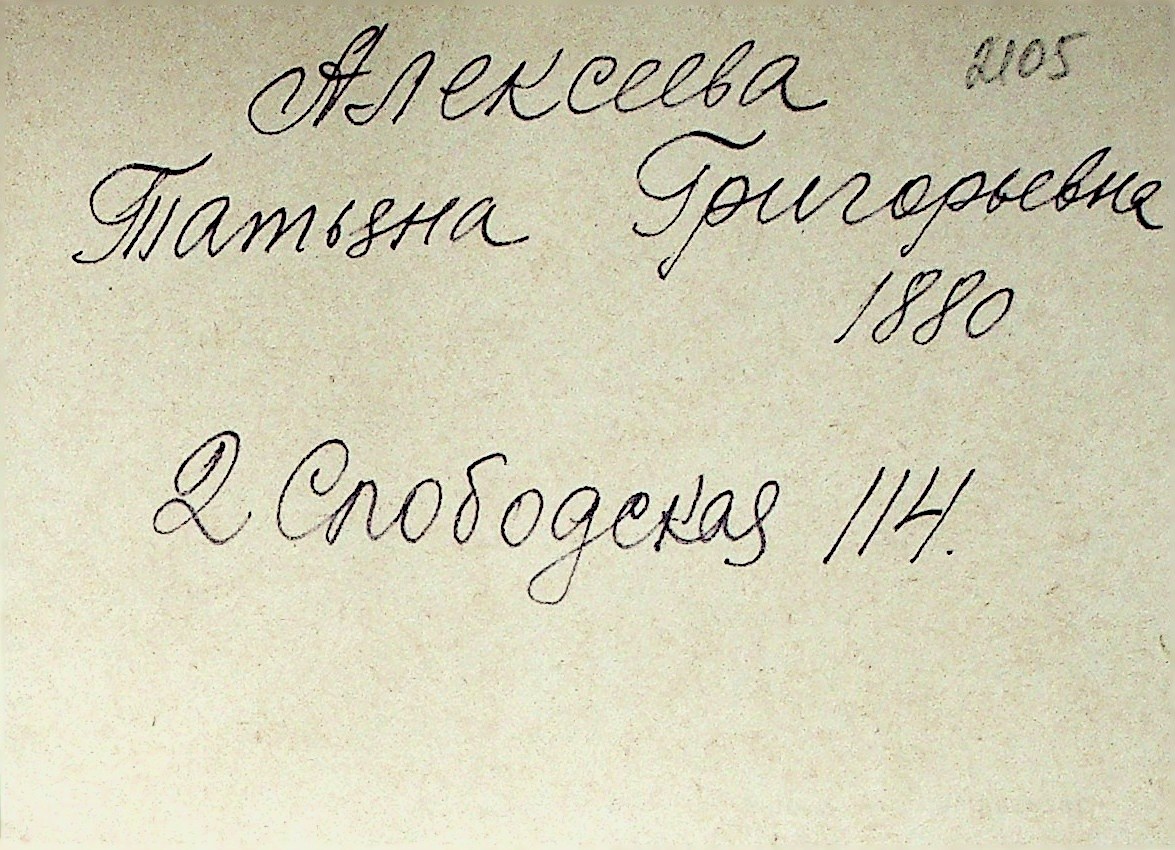 Алексеева 2105
Татьяна Григорьевна
1880
2 Слободская 114.